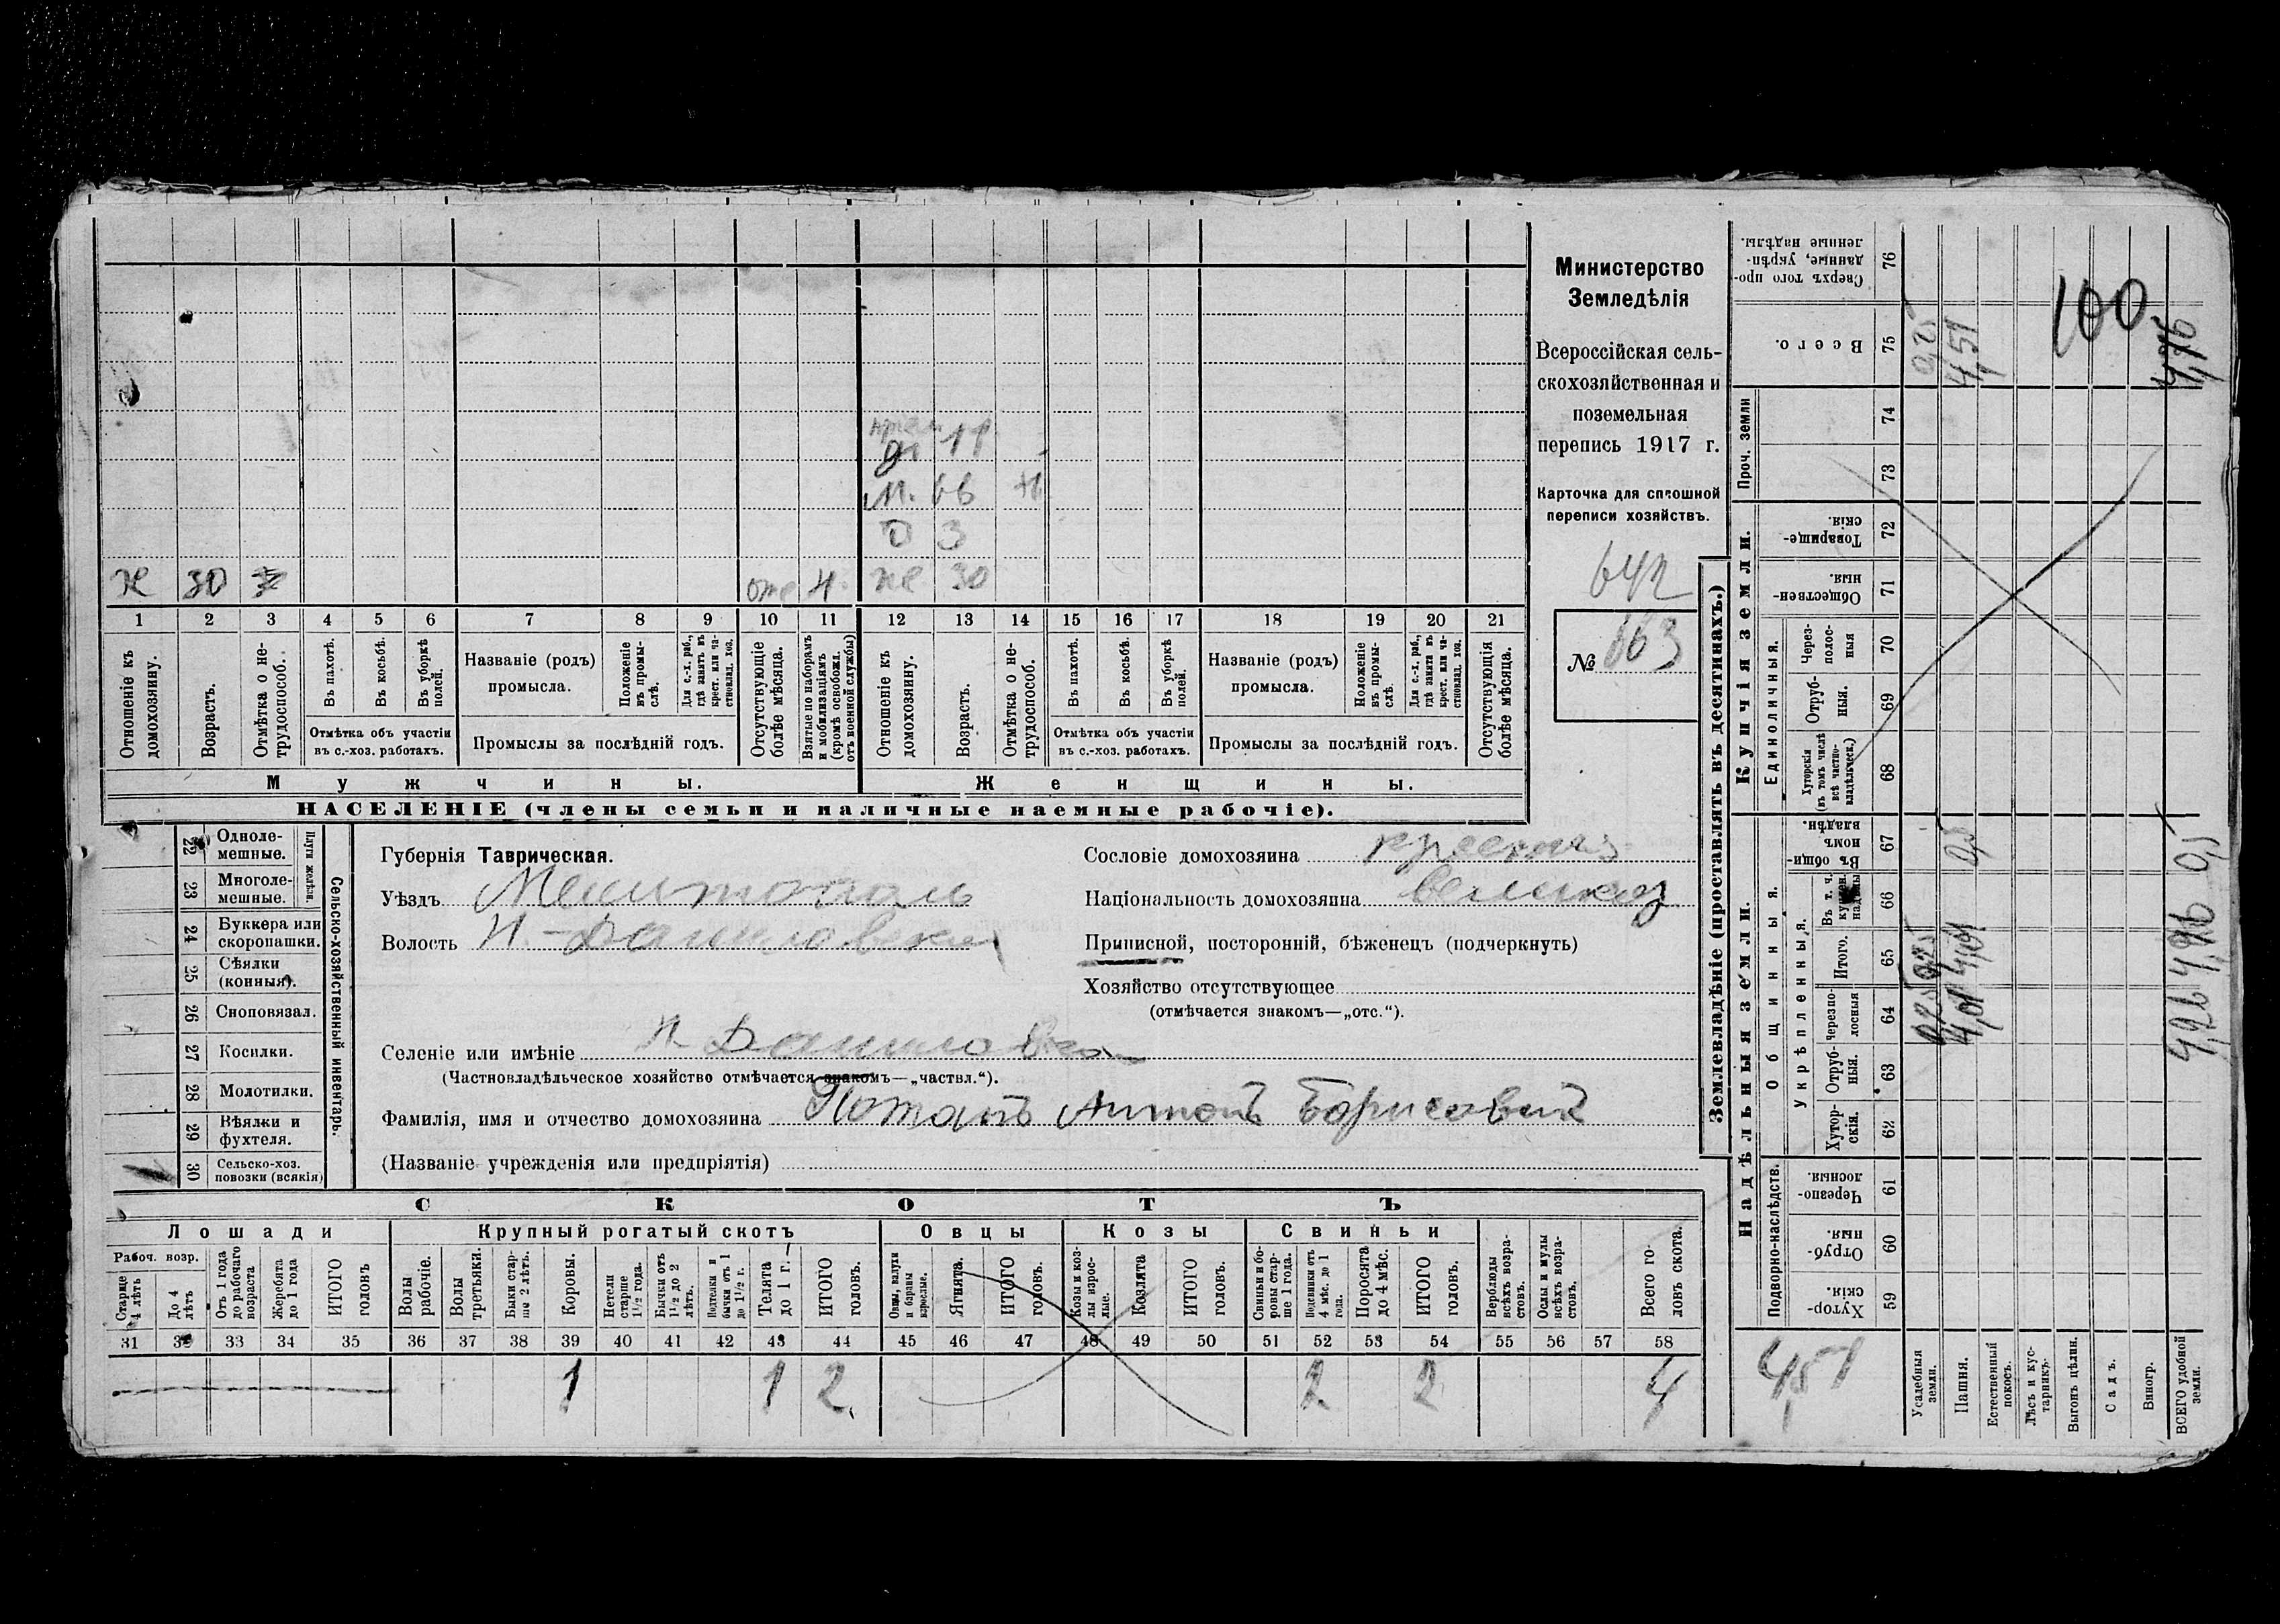 Министерство
Земледѣлія
Всероссійская сель-
скохозяйственная и
поземельная
перепись 1917 г.
Карточка для сплошной
переписи хозяйствъ.
642
№ 663
м. 66 н
д 3
х 30 отс н. же 30
1 2 3 4 5 6 7 8 9 10 11 12 13 14 15 16 17 18 19 20 21
Отношеніе къ домохозяину.
Возрастъ.
Отмѣтка о не-трудоспособ.
Въ пахотѣ.
Въ косьбѣ.
Въ уборкѣ полей.
Отмѣтка объ участіи
въ с.-хоз. работахъ.
Названіе (родъ)
промысла.
Положеніе въ промы-слѣ.
Для с.-х. раб., гдѣ занятъ въ крест. или ча-стновлад. хоз.
Промыслы за послѣдній годъ.
Отсутствующіе болѣе мѣсяца.
Взятые по наборамъ и мобилизаціямъ (кромѣ освобожд. отъ военной службы)
Отношеніе къ домохозяину.
Возрастъ.
Отмѣтка о не-трудоспособ.
Въ пахотѣ.
Въ косьбѣ.
Въ уборкѣ полей.
Отмѣтка объ участіи
въ с.-хоз. работахъ.
Названіе (родъ)
промысла.
Положеніе въ промы-слѣ.
Для с.-х. раб., гдѣ занята въ крест. или ча-стновлад. хоз.
Промыслы за послѣдній годъ.
Отсутствующія болѣе мѣсяца.
Мужчины.
Женщины.
НАСЕЛЕНІЕ (члены семьи и наличные наемные рабочіе).
22 Одноле-мешные.
23 Многоле-мешные.
Плуги желѣзн.
24 Буккера или скоропашки.
25 Сѣялки (конныя).
26 Сноповязал.
27 Косилки.
28 Молотилки.
29 Вѣялки и фухтеля.
30 Сельско-хоз. повозки (всякія)
Сельско-хозяйственный инвентарь.
Губернія Таврическая.
Уѣздъ Мелитополь
Волость Н.-Даниловская
Селеніе или имѣніе Н Даниловка
(Частновладѣльческое хозяйство отмѣчается знакомъ—„частвл.“).
Фамилія, имя и отчество домохозяина Потапъ Антонъ Борисович
(Названіе учрежденія или предпріятія)
Сословіе домохозяина
Національность домохозяина великор
Приписной, посторонній, бѣженецъ (подчеркнуть)
Хозяйство отсутствующее
(отмѣчается знакомъ—„отс.“).
СКОТЪ
Лошади
Крупный рогатый скотъ
Овцы
Козы
Свиньи
Рабоч. возр.
Старше 4 лѣтъ
До 4 лѣтъ
Отъ 1 года до рабочаго возраста
Жеребята до 1 года
ИТОГО головъ
Волы рабочіе.
Волы третьяки.
Быки стар-ше 2 лѣтъ.
Коровы.
Нетели старше 1½ года.
Бычки отъ 1½ до 2 лѣтъ.
Подтелки и бычки отъ 1 до 1½ г.
Телята до 1 г.
ИТОГО головъ.
Овцы, валухи и бараны взрослые.
Ягнята.
ИТОГО головъ.
Козы и коз-лы взрос-лые.
Козлята
ИТОГО головъ.
Свиньи и бо-ровы стар-ше 1 года.
Подсвинки отъ 4 мѣс. до 1 года.
Поросята до 4 мѣс.
ИТОГО головъ.
Верблюды всѣхъ возра-стовъ.
Ослы и мулы всѣхъ возра-стовъ.
Всего го-ловъ скота.
31 32 33 34 35 36 37 38 39 40 41 42 43 44 45 46 47 48 49 50 51 52 53 54 55 56 57 58
1 1 2 2 2 4
Землевладѣніе (проставлять въ десятинахъ.)
Надѣльныя земли.
Купчія земли.
Проч. земли
Подворно-наслѣдств.
Общинныя.
Укрѣпленныя.
Единоличныя.
Сверхъ того про-данные, укрѣп-ленные надѣлы. 76
Всего. 75
74
73
Товарище-скія. 72
Обществен-ныя. 71
Через-полос-ныя 70
Отруб-ныя. 69
Хуторскія (въ томъ числѣ всѣ частно-владѣльческ.) 68
Въ общи-номъ владѣн. 67
Въ т. ч. куплен. надѣлы 66
Итого. 65
Черезпо-лосныя 64
Отруб-ныя. 63
Хутор-скія. 62
Черезпо-лосныя 61
Отруб-ныя 60
Хутор-скія. 59
Усадебныя земли.
Пашня.
Естественный покосъ.
Лѣсъ и кус-тарникъ.
Выгонъ цѣлин.
Садъ.
Виногр.
ВСЕГО удобной земли.
100
0,25
4,51
4,76
0,5
0,25 0,25
4,01 4,01
0,5
4,51